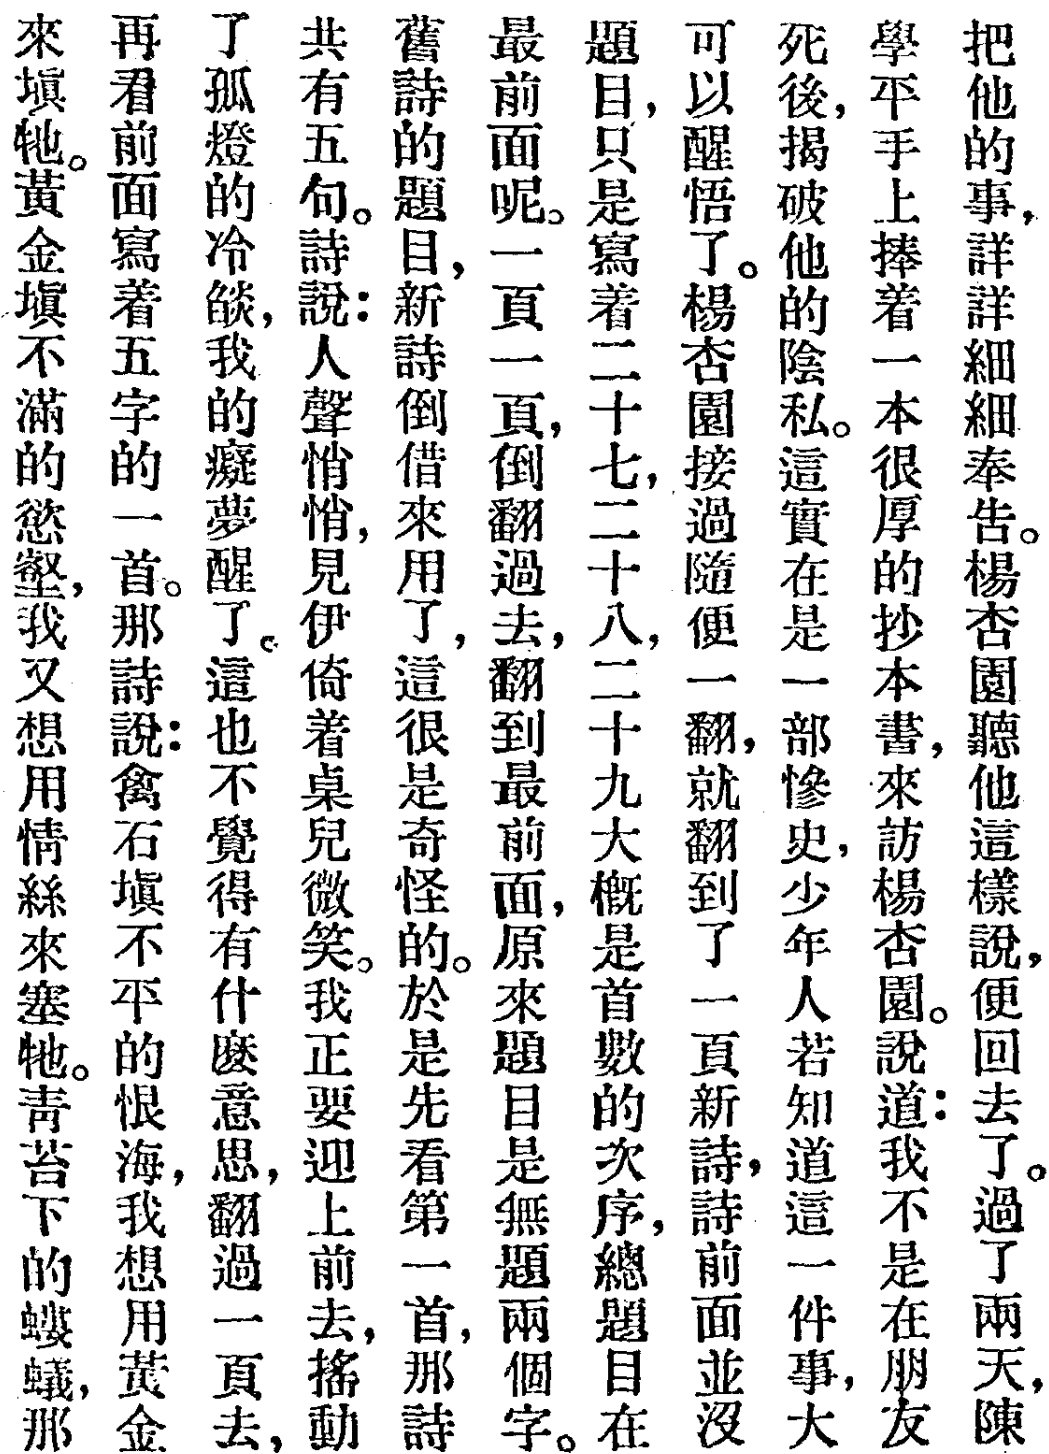 把他的事，詳詳細細奉告。楊杏園聽他這樣說，便回去了。過了兩天，陳
學平手上捧着一本很厚的抄本書，來訪楊杏園。說道：我不是在朋友
死後，揭破他的陰私。這實在是一部慘史，少年人若知道這一件事，大
可以醒悟了。楊杏園接過隨便一翻，就翻到了一頁新詩，詩前面並沒
題目，只是寫着二十七，二十八，二十九大概是首數的次序，總題目在
最前面呢。一頁一頁，倒翻過去，翻到最前面，原來題目是無題兩個字。
舊詩的題目，新詩倒借來用了，這很是奇怪的。於是先看第一首，那詩
共有五句。詩說：人聲悄悄，見伊倚着桌兒微笑。我正要迎上前去，搖動
了孤燈的冷燄，我的癡夢醒了。這也不覺得有什麽意思，翻過一頁去，
再看前面寫着五字的一首。那詩說：禽石塡不平的恨海，我想用黃金
來塡牠。黃金塡不滿的慾壑，我又想用情絲來塞牠。靑苔下的螻蟻，那